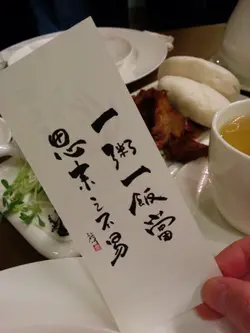 一粥一飯當
思來之不易